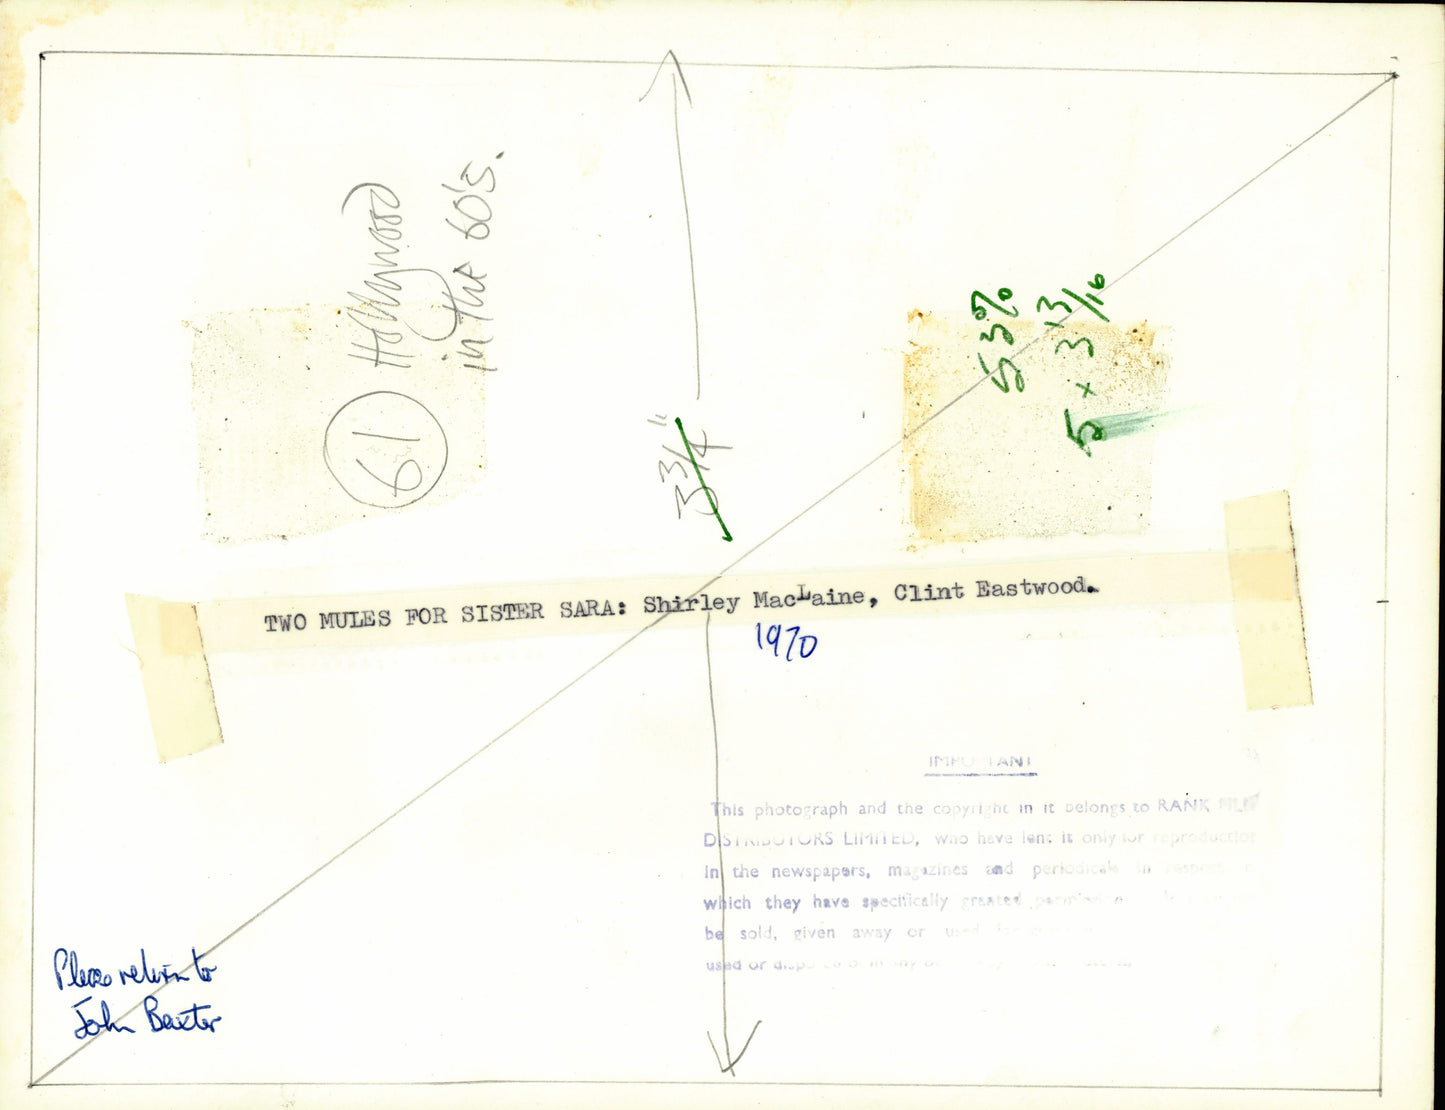 Hollywood
in the 60's.
61
3 3/4"
53%
5 x 3 13/16
TWO MULES FOR SISTER SARA: Shirley MacLaine, Clint Eastwood.
1970
IMPORTANT
This photograph and the copyright in it belongs to RANK FILM
DISTRIBUTORS LIMITED, who have lent it only for reproduction
in the newspapers, magazines and periodicals in respect
which they have specifically granted permission
be sold, given away or used for
used or
Please return to
John Baxter